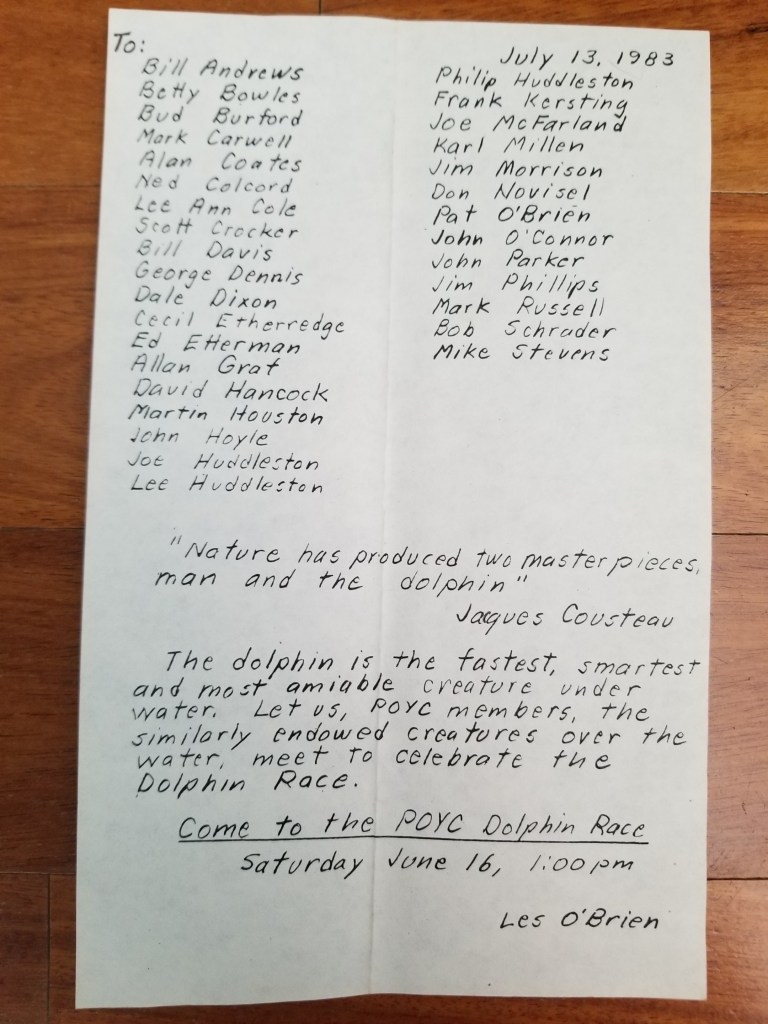 To:
July 13, 1983
Bill Andrews
Betty Bowles
Bud Burford
Mark Carwell
Alan Coates
Ned Colcord
Lee Ann Cole
Scott Crocker
Bill Davis
George Dennis
Dale Dixon
Cecil Etherredge
Ed Etterman
Allan Graf
David Hancock
Martin Houston
John Hoyle
Joe Huddleston
Lee Huddleston
Philip Huddleston
Frank Kersting
Joe McFarland
Karl Millen
Jim Morrison
Don Novisel
Pat O'Brien
John O'Connor
John Parker
Jim Phillips
Mark Russell
Bob Schrader
Mike Stevens
"Nature has produced two masterpieces,
man and the dolphin"
Jaques Cousteau
The dolphin is the fastest, smartest
and most amiable creature under
water. Let us, POYC members, the
similarly endowed creatures over the
water, meet to celebrate the
Dolphin Race.
Come to the POYC Dolphin Race
Saturday June 16, 1:00 pm
Les O'Brien